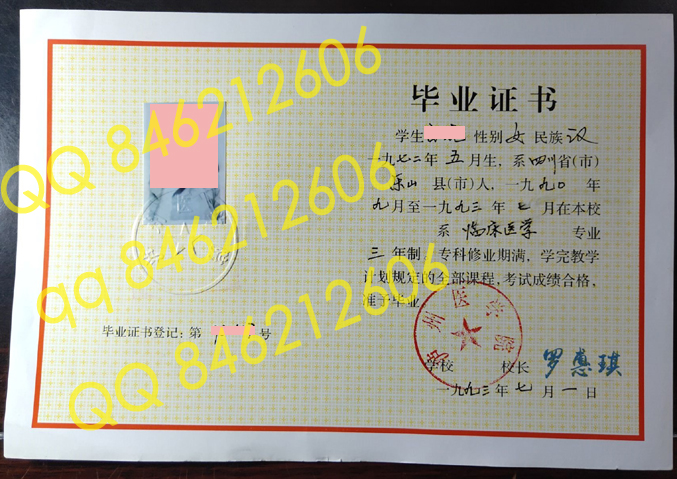 毕业证书
学生 性别 女 民族 汉
一九七二年 五月生,系四川省(市)
乐山 县(市)人,一九九〇 年
九月至一九九三 年 七 月在本校
系 临床医学 专业
三 年制 专科修业期满,学完教学
计划规定的全部课程,考试成绩合格,
准予毕业
毕业证书登记:第 号
学校 校长 罗惠琪
一九九三年七月一日
州医学院
QQ 846212606
qq 846212606
QQ 846212606